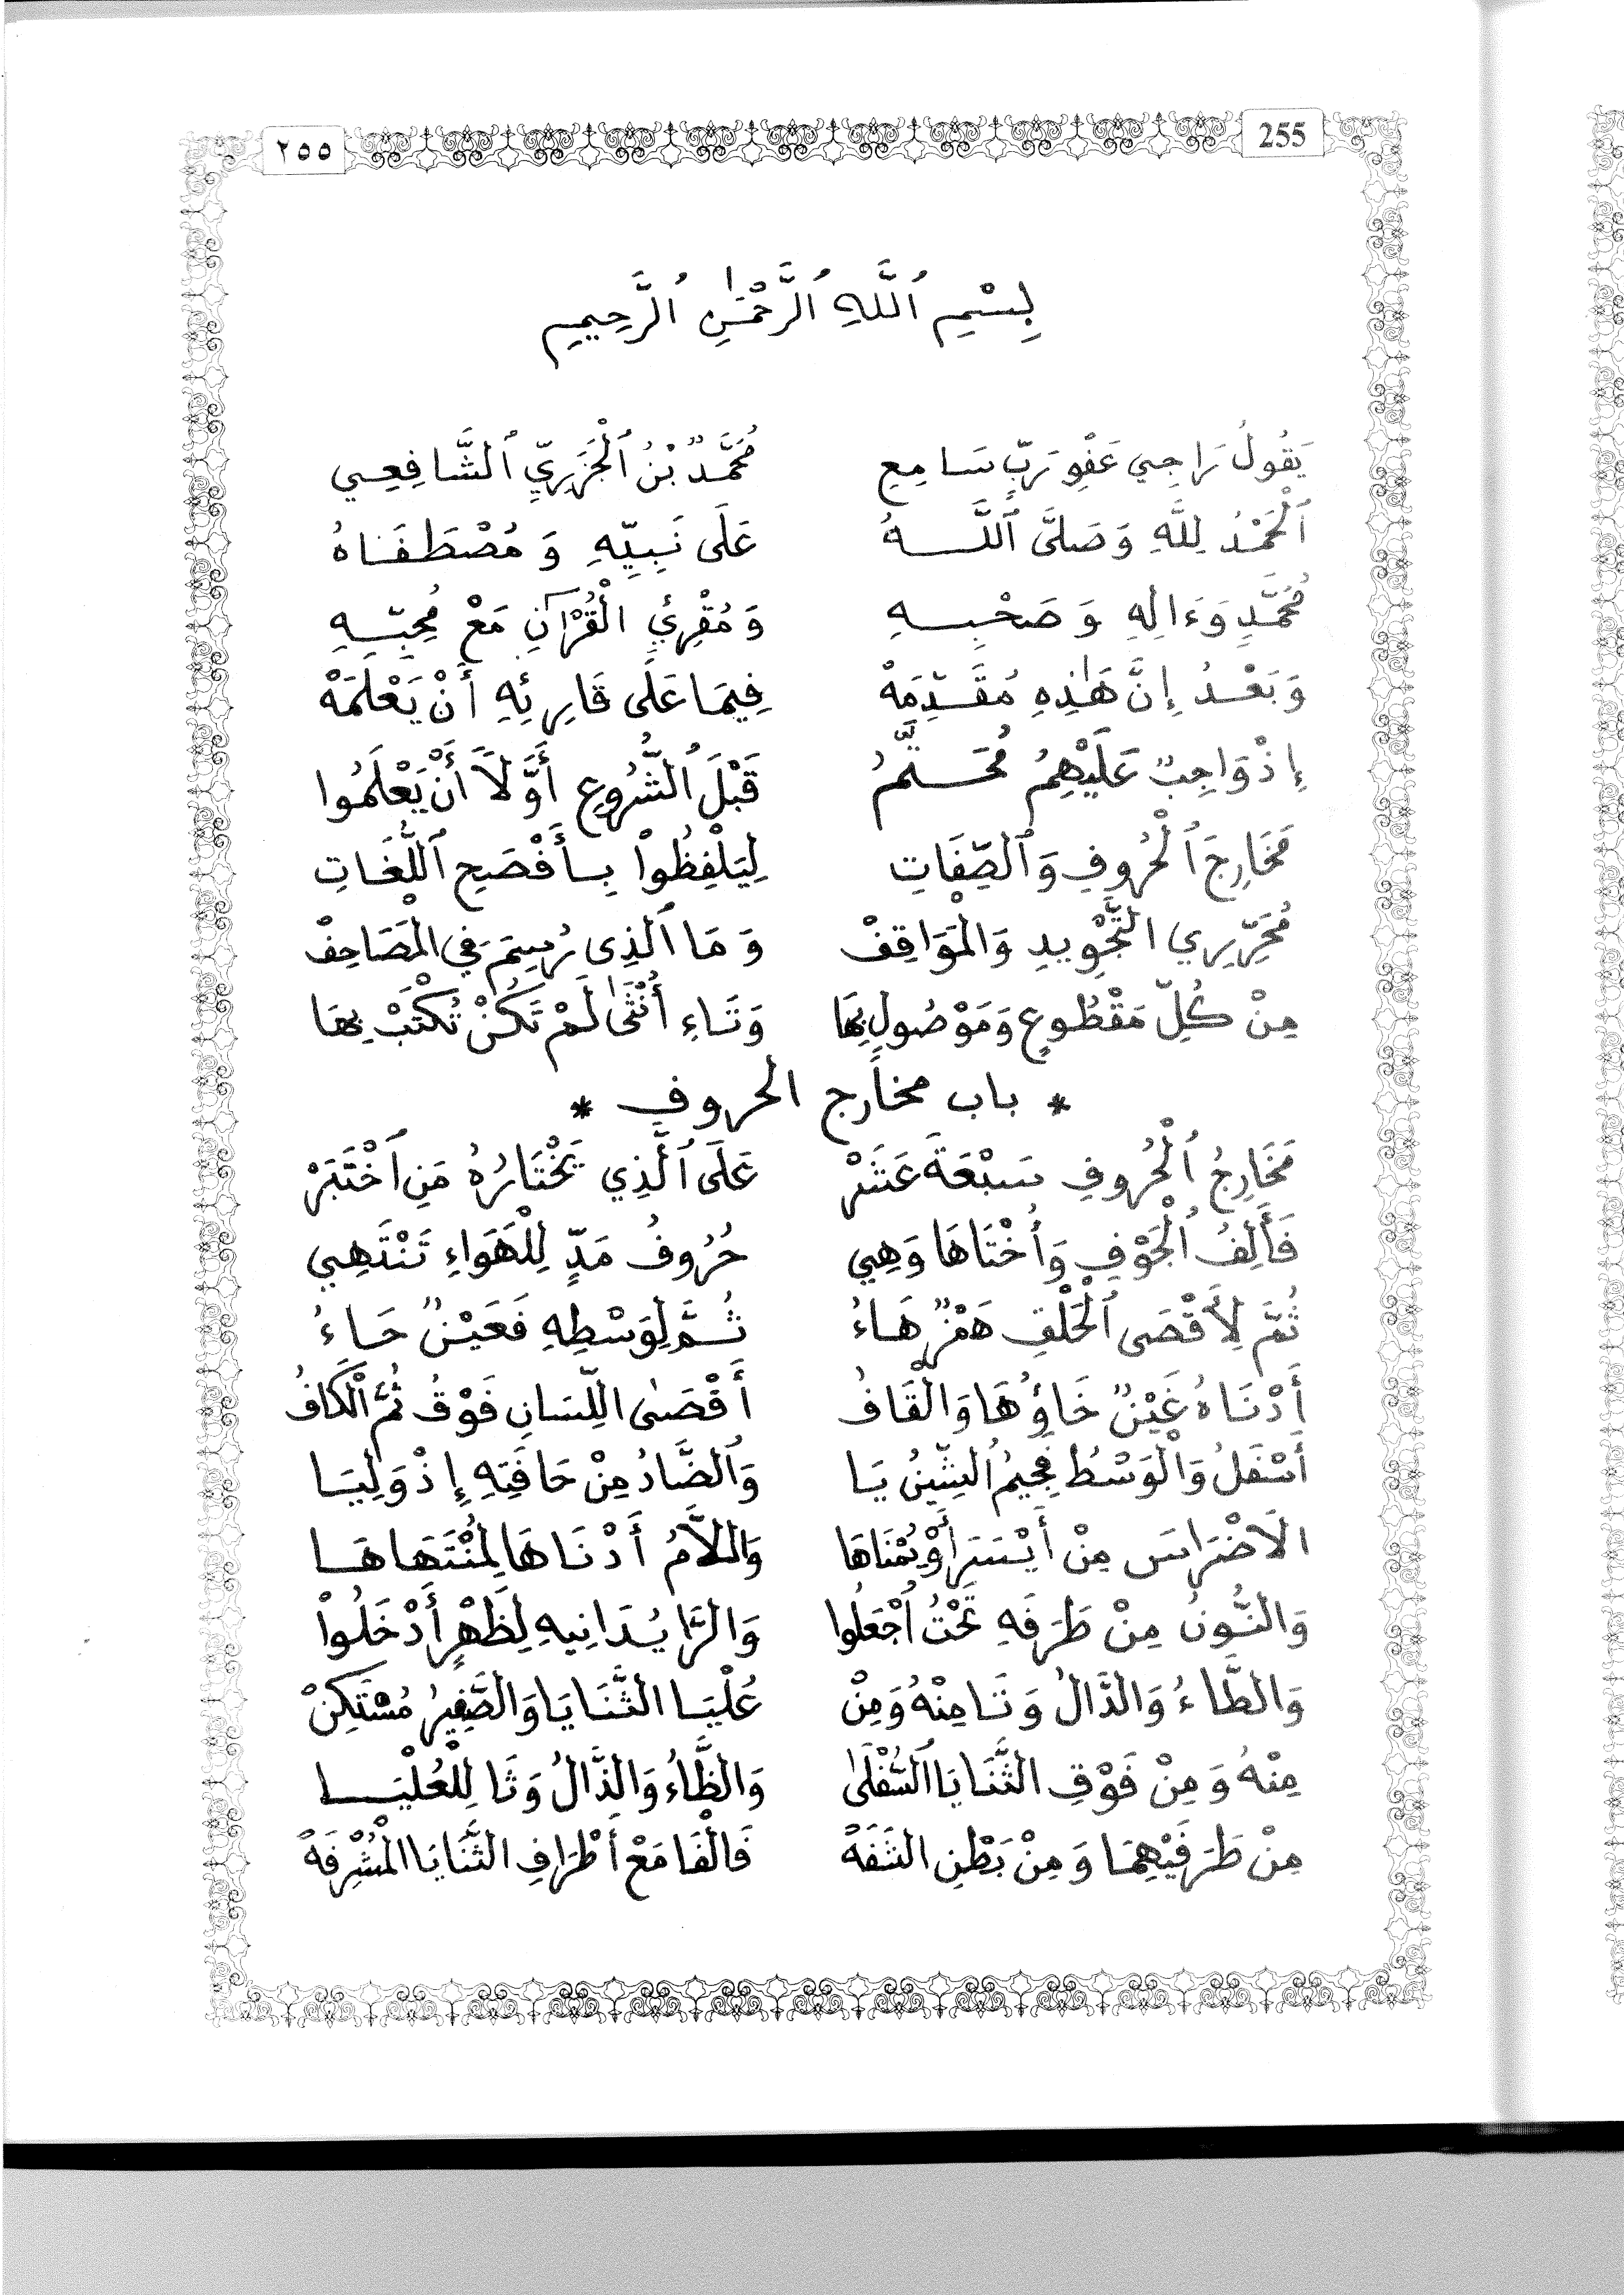 ٢٥٥ 255
بِسْمِ ٱللَّهِ ٱلرَّحْمَٰنِ ٱلرَّحِيمِ
يَقُولُ رَاجِي عَفْوِ رَبٍّ سَامِعِ مُحَمَّدٌ بْنُ ٱلْجَزَرِيِّ ٱلشَّافِعِي
ٱلْحَمْدُ لِلَّهِ وَصَلَّى ٱللَّهُ عَلَى نَبِيِّهِ وَمُصْطَفَاهُ
مُحَمَّدٍ وَءَالِهِ وَصَحْبِهِ وَمُقْرِئِ الْقُرْآنِ مَعْ مُحِبِّهِ
وَبَعْدُ إِنَّ هَٰذِهِ مُقَدِّمَهْ فِيمَا عَلَى قَارِئِهِ أَنْ يَعْلَمَهْ
إِذْ وَاجِبٌ عَلَيْهِمُ مُحَتَّمُ قَبْلَ ٱلشُّرُوعِ أَوَّلاً أَنْ يَعْلَمُوا
مَخَارِجَ ٱلْحُرُوفِ وَٱلصِّفَاتِ لِيَلْفِظُواْ بِأَفْصَحِ ٱللُّغَاتِ
مُحَرِّرِي التَّجْوِيدِ وَالْمَوَاقِفْ وَمَا ٱلَّذِى رُسِمَ فِي الْمَصَاحِفْ
مِنْ كُلِّ مَقْطُوعٍ وَمَوْصُولٍ بِهَا وَتَاءِ أُنْثَىٰ لَمْ تَكُنْ تُكْتَبْ بِهَا
* باب مخارج الحروف *
مَخَارِجُ ٱلْحُرُوفِ سَبْعَةَ عَشَرْ عَلَى ٱلَّذِي يَخْتَارُهُ مَنِ ٱخْتَبَرْ
فَأَلِفُ ٱلْجَوْفِ وَأُخْتَاهَا وَهِي حُرُوفُ مَدٍّ لِلْهَوَاءِ تَنْتَهِي
ثُمَّ لِأَقْصَى ٱلْحَلْقِ هَمْزٌ هَاءُ ثُمَّ لِوَسْطِهِ فَعَيْنٌ حَاءُ
أَدْنَاهُ غَيْنٌ خَاؤُهَا وَالْقَافُ أَقْصَىٰ اللِّسَانِ فَوْقُ ثُمَّ ٱلْكَافُ
أَسْفَلُ وَالْوَسْطُ فَجِيمُ ٱلشِّينُ يَا وَٱلضَّادُ مِنْ حَافَتِهِ إِذْ وَلِيَا
الَاضْرَاسَ مِنْ أَيْسَرَ أَوْ يُمْنَاهَا وَاللاَّمُ أَدْنَاهَا لِمُنْتَهَاهَا
وَالنُّونُ مِنْ طَرَفِهِ تَحْتُ ٱجْعَلُوا وَالرَّا يُدَانِيهِ لِظَهْرٍ أَدْخَلُواْ
وَالطَّاءُ وَالدَّالُ وَتَا مِنْهُ وَمِنْ عُلْيَا الثَّنَايَا وَالصَّفِيرُ مُسْتَكِنْ
مِنْهُ وَمِنْ فَوْقِ الثَّنَايَا ٱلسُّفْلَىٰ وَالظَّاءُ وَالذَّالُ وَثَا لِلْعُلْيَا
مِنْ طَرَفَيْهِمَا وَمِنْ بَطْنِ الشَّفَهْ فَالْفَا مَعْ أَطْرَافِ الثَّنَايَا الْمُشْرِفَهْ